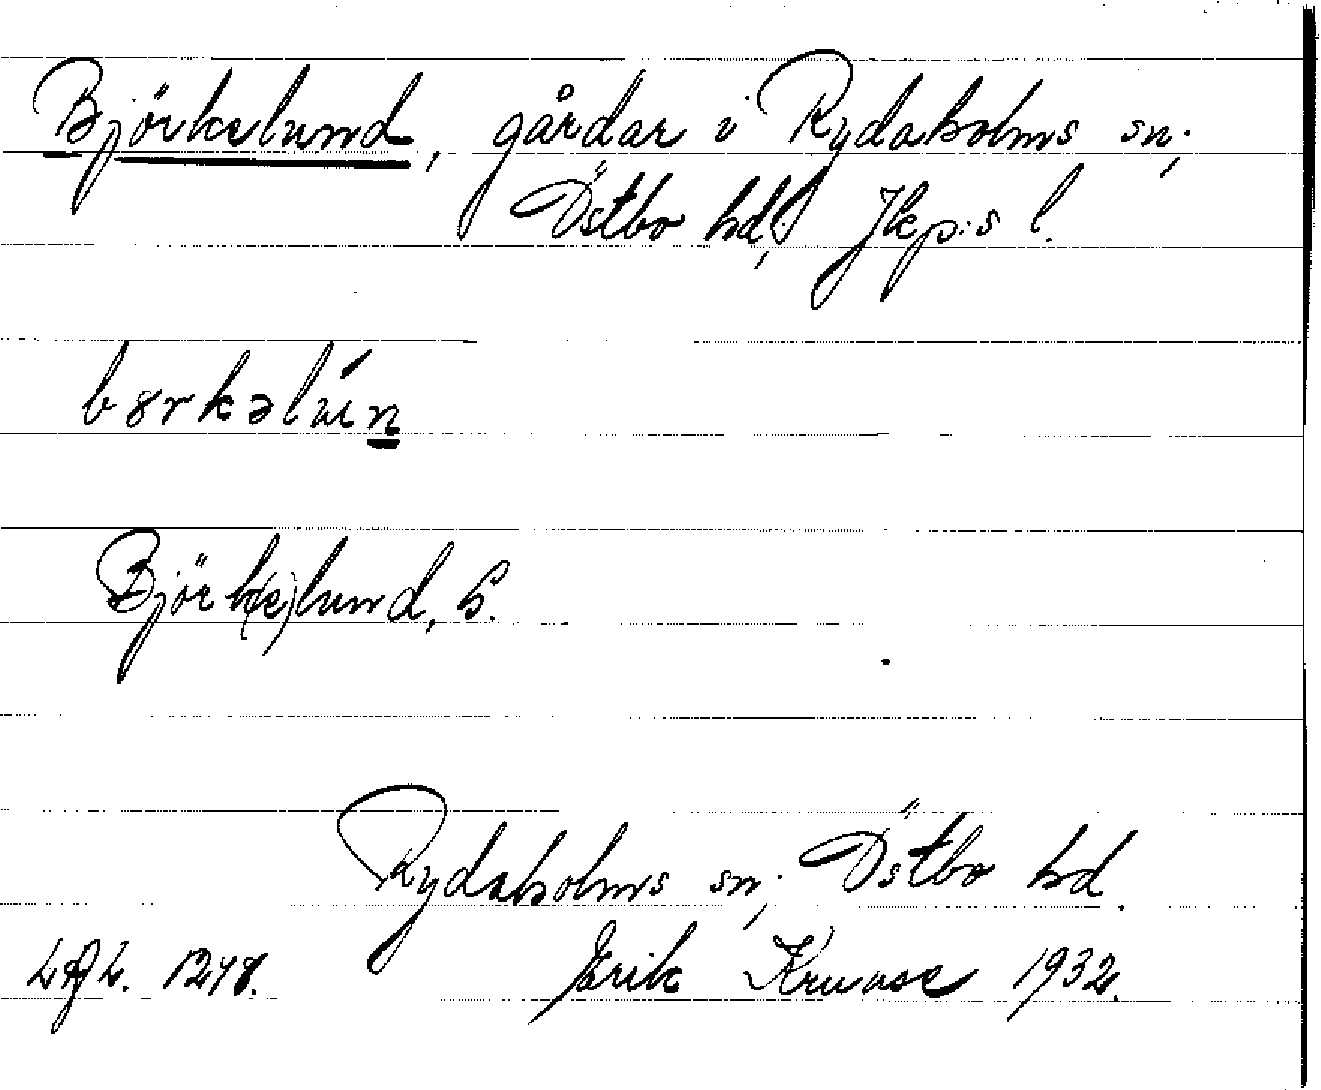 Björkelund, gårdar i Rydaholms sn;
Östbo hd, Jkp:s l.
bɤrkəlún
Björk(e)lund, S.
Rydaholms sn; Östbo hd.
LAL. 1278. Erik Kruuse 1932.